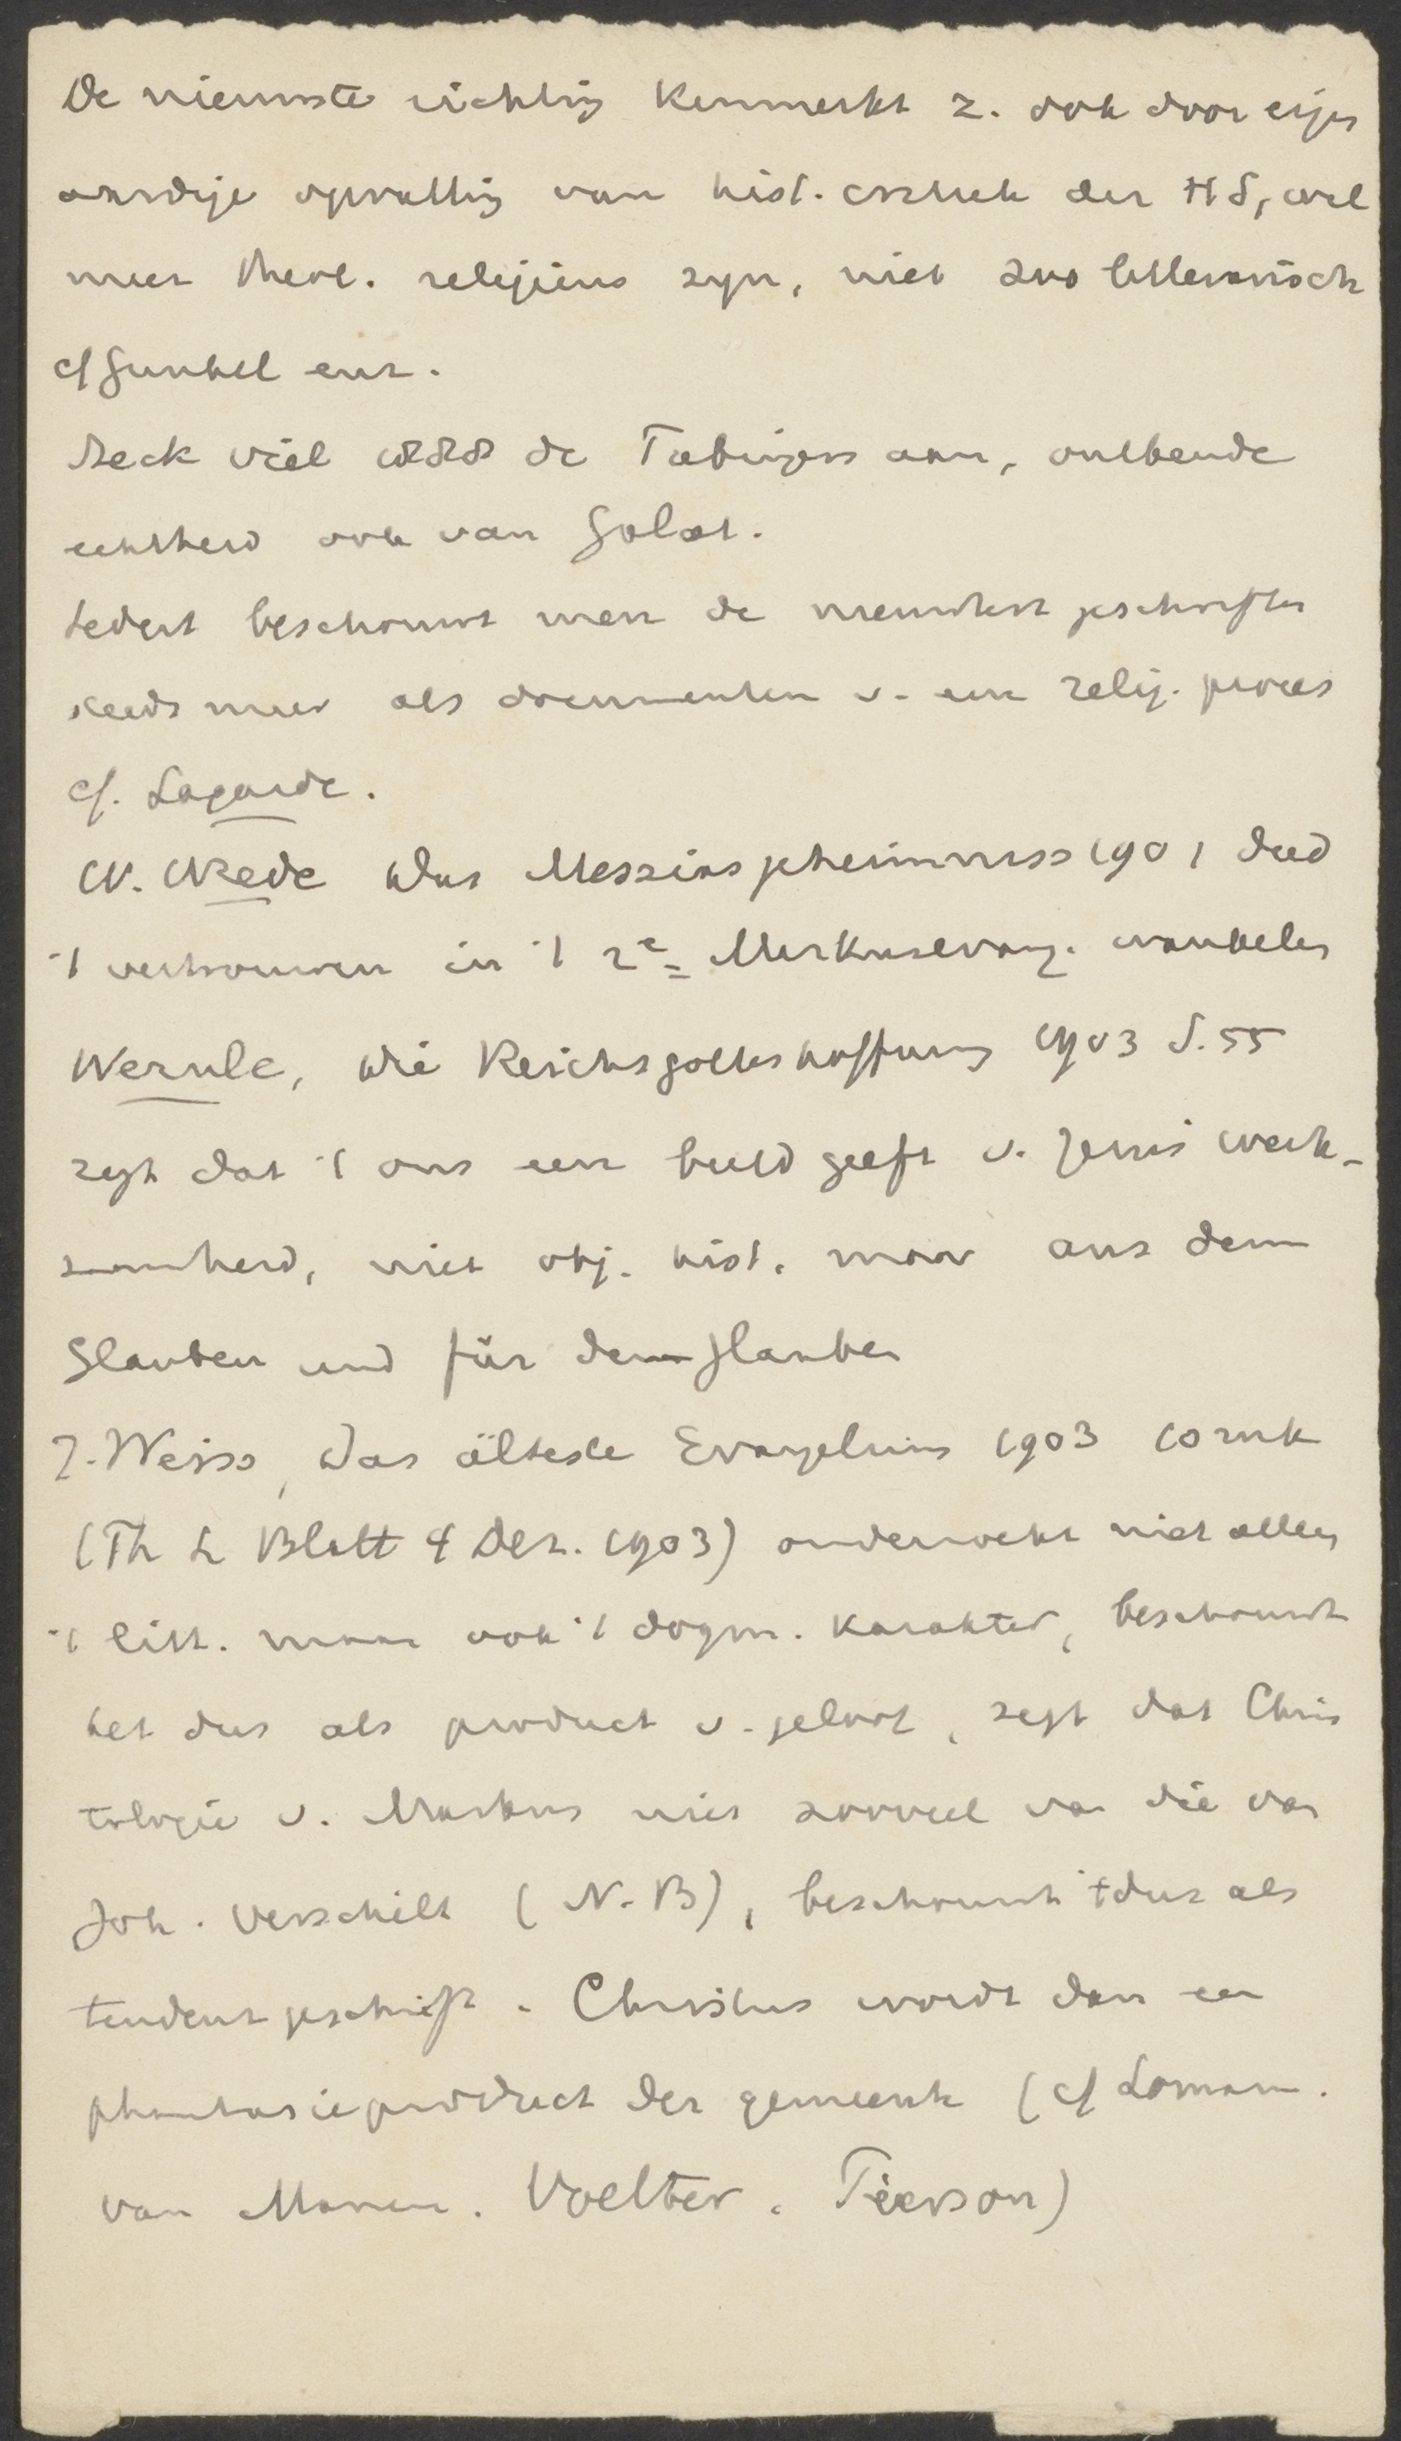 De nieuwste richting kenmerkt z. ook door eigen
aardige opvatting van hist. critiek der HS, wil
meer theol. religieus zijn, niet zoo litterarisch
cf Gunkel enz.
Steck viel de Tubingers aan, ontkende
echtheid ook van Galat.
Laatst beschouwt men de nieuwtest geschriften
steeds meer als documenten v. een relig. proces
cf. Lagarde.
W. Wrede Das Messiasgeheimniss 1901 deed
't vertrouwen in 't 2e Markusevang. wankelen
Wernle, Die Reichsgotteshoffnung 1903 S. 55
zegt dat 't ons een beeld geeft v. Jezus werk-
zaamheid, niet obj. hist. maar aus dem
Glauben und für den Glauben
J. Weiss, Das älteste Evangelium 1903
(Th L Blatt 4 Dez. 1903) onderzoekt niet alleen
't litt. maar ook 't dogm. karakter, beschouwt
het dus als product v. geloof, zegt dat Chris
tologie v. Markus niet zooveel van die van
Joh. verschilt (N.B), beschouwt 't dus als
tendenz geschrift. Christus wordt dan een
phantasieproduct der gemeente (cf Loman.
van Manen. Voelter. Pierson)